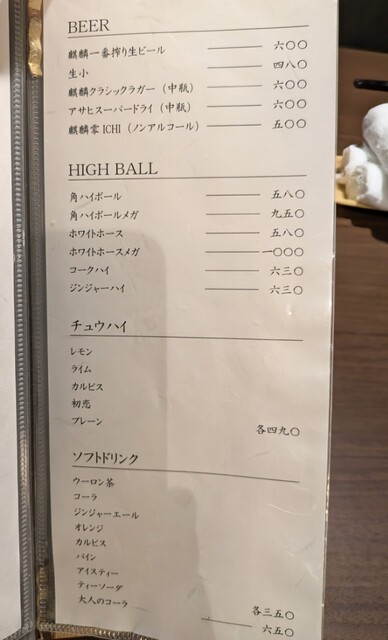 BEER
麒麟一番搾り生ビール 六〇〇
生小 四八〇
麒麟クラシックラガー（中瓶） 六〇〇
アサヒスーパードライ（中瓶） 六〇〇
麒麟零ICHI（ノンアルコール） 五〇〇
HIGH BALL
角ハイボール 五八〇
角ハイボールメガ 九五〇
ホワイトホース 五八〇
ホワイトホースメガ 一〇〇〇
コークハイ 六三〇
ジンジャーハイ 六三〇
チュウハイ
レモン
ライム
カルピス
初恋
プレーン
各四九〇
ソフトドリンク
ウーロン茶
コーラ
ジンジャーエール
オレンジ
カルピス
パイン
アイスティー
ティーソーダ
各三五〇
大人のコーラ 六五〇